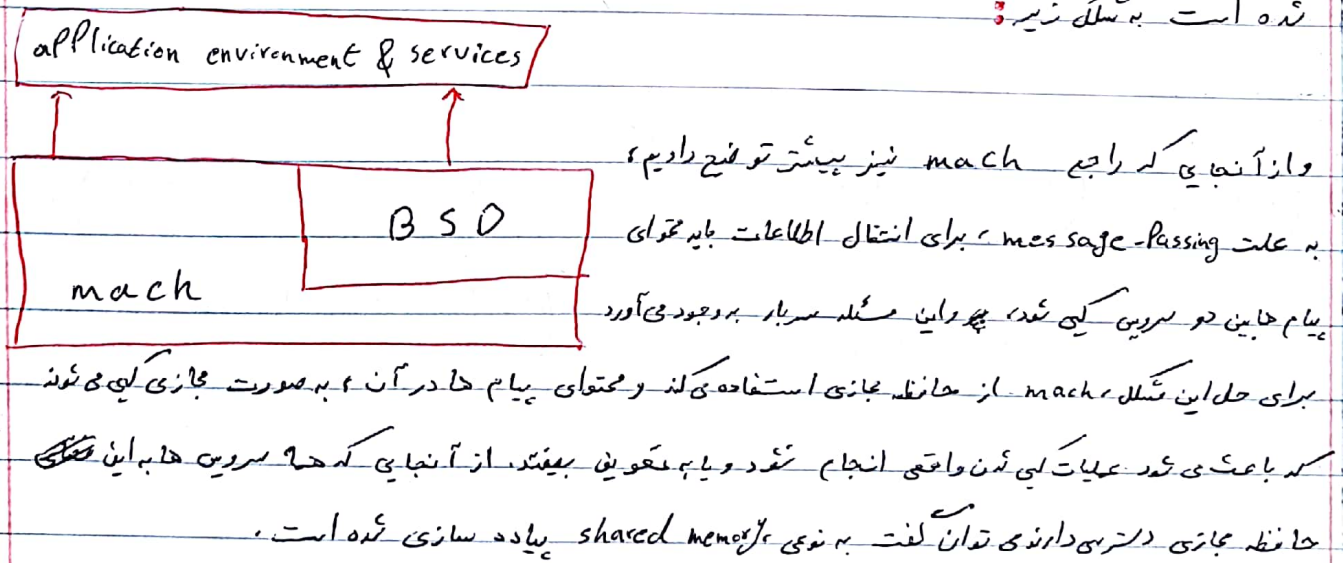 شده است به شکل زیر:
application environment & services
و از آنجایی که راجع mach نیز پیشتر توضیح دادیم،
BSD
به علت message-Passing، برای انتقال اطلاعات باید محتوای
mach
پیام ها بین دو سرویس کپی شود، و این مسئله سربار به وجود می آورد
برای حل این مشکل، mach از حافظه مجازی استفاده می کند و محتوای پیام ها در آن، به صورت مجازی کپی می شوند
که باعث می شود عملیات کپی شدن واقعی انجام نشود و یا به تعویق بیفتد. از آنجایی که همه سرویس ها به این
حافظه مجازی دسترسی دارند می توان گفت به نوعی، shared memory پیاده سازی شده است.